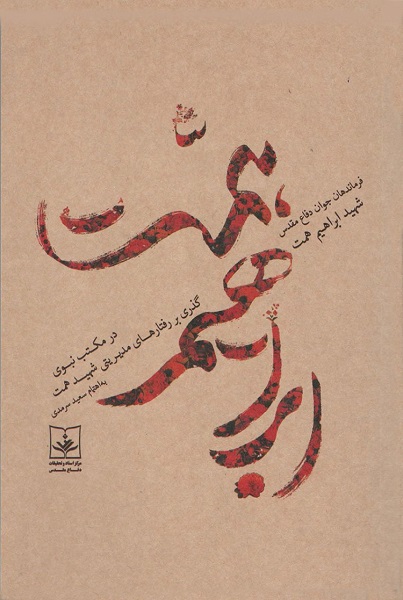 همّت
ابراهیم
فرماندهان جوان دفاع مقدس
شهید ابراهیم همت
در مکتب نبوی
گذری بر رفتارهای مدیریتی شهید همت
به اهتمام سعید سرمدی
مرکز اسناد و تحقیقات
دفاع مقدس